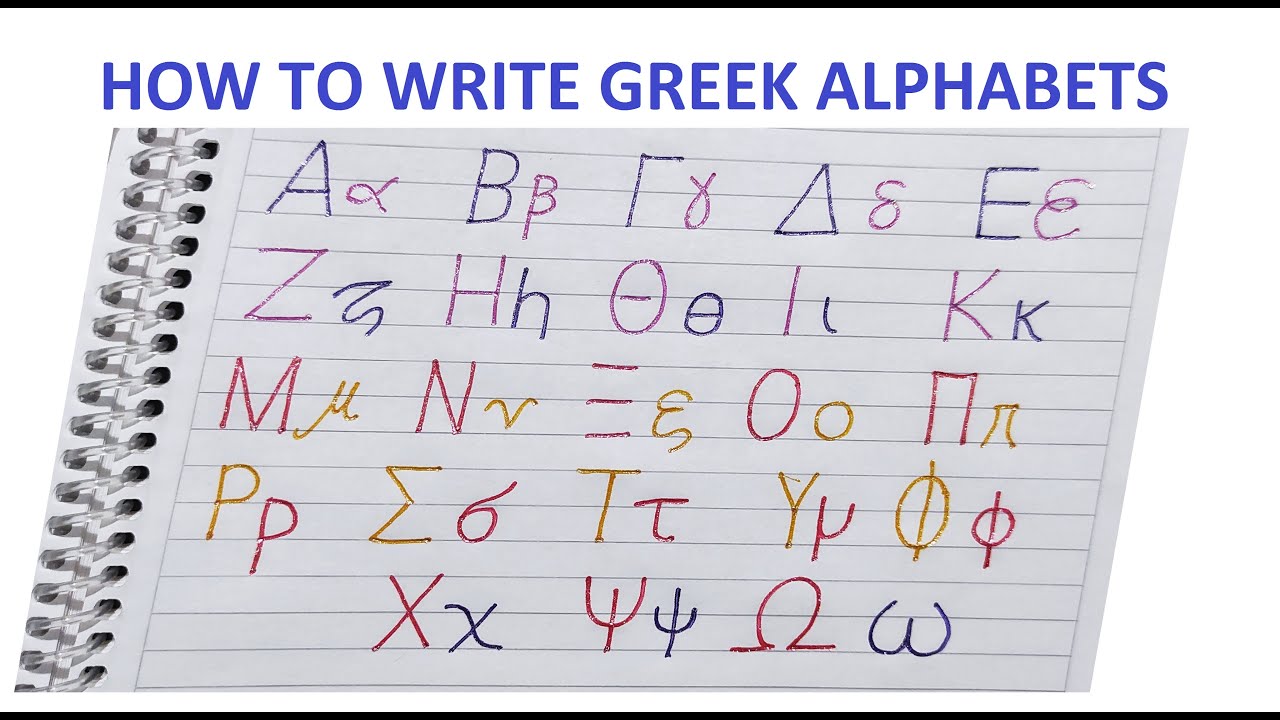 HOW TO WRITE GREEK ALPHABETS
Α α Β β Γ γ Δ δ Ε ε
Ζ ζ Η h Θ θ Ι ι Κ κ
Μ μ Ν ν Ξ ξ Ο ο Π π
Ρ ρ Σ σ Τ τ Υ μ Φ φ
Χ χ Ψ ψ Ω ω